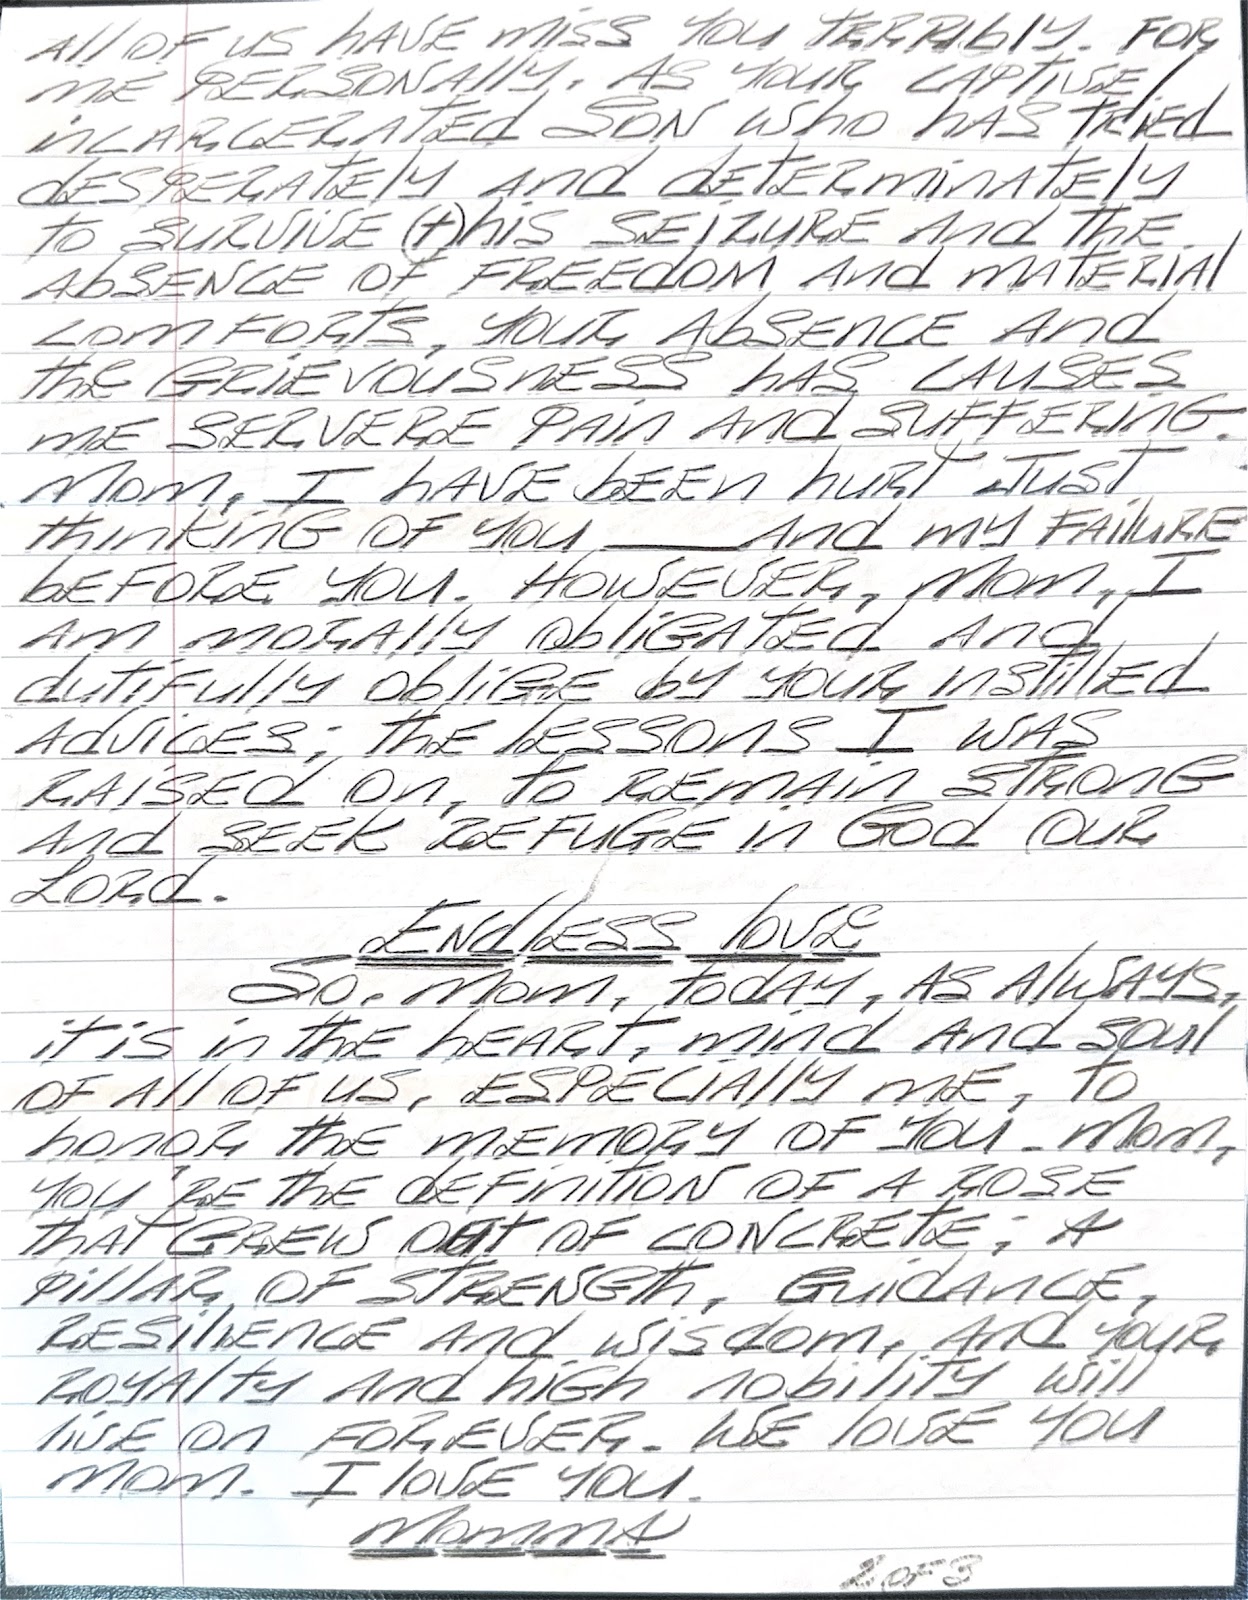 All of us have miss you terribly. For
me personally, as your captive/
incarcerated son who has tried
desperately and determinately
to survive (t)his seizure and the
absence of freedom and material
comforts, your absence and
the grievousness has causes
me servere pain and suffering.
Mom, I have been hurt just
thinking of you ___ and my failure
before you. However, Mom, I
am morally obligated and
dutifully oblige by your instilled
advices; the lessons I was
raised on, to remain strong
and seek refuge in God our
Lord.
Endless love
So, Mom, today, as always,
it is in the heart, mind and soul
of all of us, especially me, to
honor the memory of you. Mom,
you're the definition of a rose
that grew out of concrete; a
pillar of strength, guidance,
resilience and wisdom, and your
royalty and high nobility will
live on forever. We love you
Mom. I love you.
Momma
2 of 3